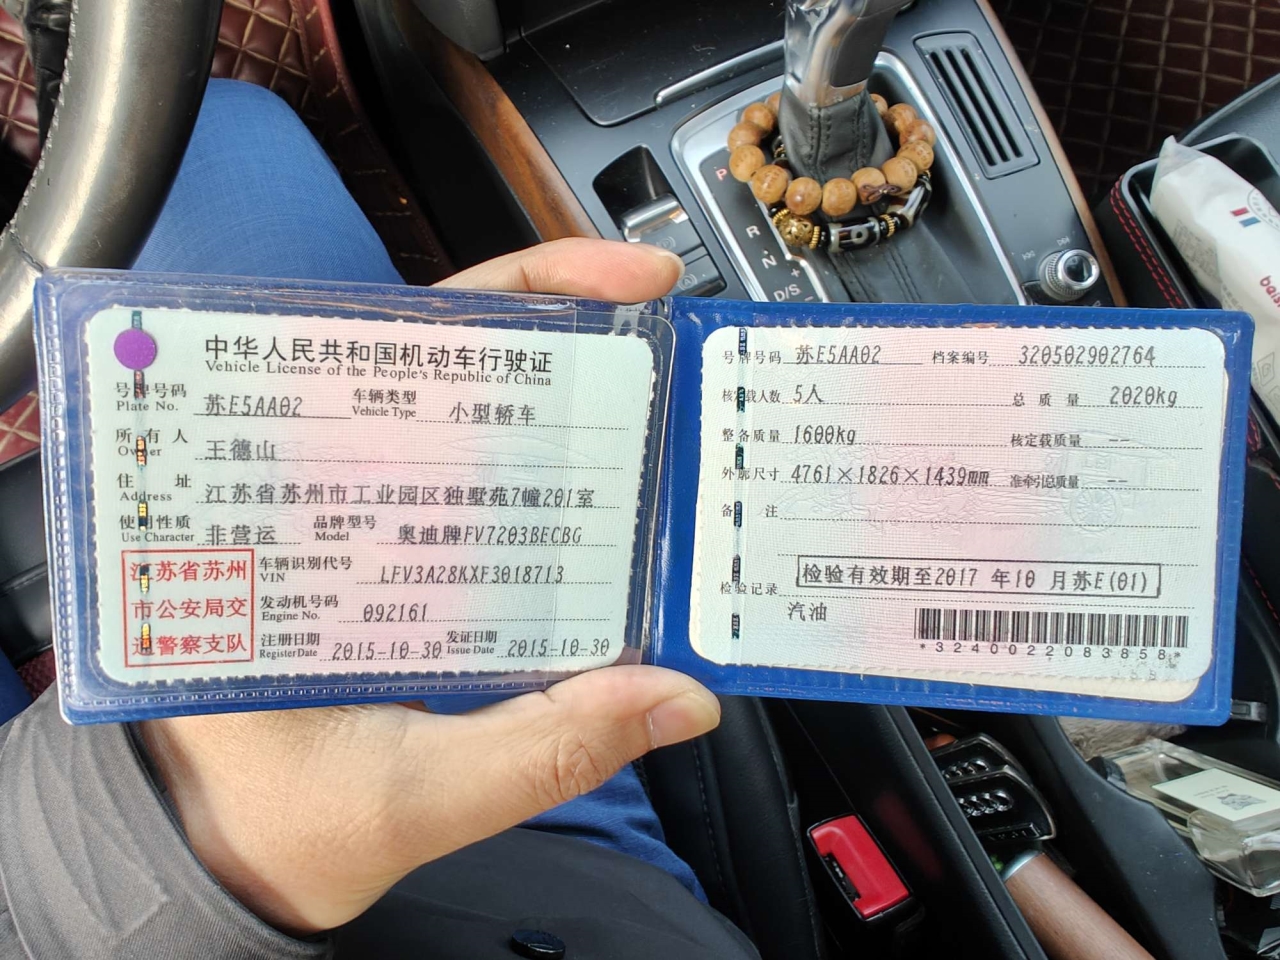 中华人民共和国机动车行驶证
Vehicle License of the People's Republic of China
号牌号码 苏E5AA02 车辆类型 小型轿车
Plate No. Vehicle Type
所有人 王德山
Owner
住址 江苏省苏州市工业园区独墅苑7幢201室
Address
使用性质 非营运 品牌型号 奥迪牌FV7203BECBG
Use Character Model
江苏省苏州
市公安局交
通警察支队
车辆识别代号 LFV3A28KXF3018713
VIN
发动机号码 092161
Engine No.
注册日期 2015-10-30 发证日期 2015-10-30
Register Date Issue Date
号牌号码 苏E5AA02 档案编号 320502902764
核定载人数 5人 总质量 2020kg
整备质量 1600kg 核定载质量 --
外廓尺寸 4761×1826×1439mm 准牵引总质量 --
备注
检验记录 检验有效期至2017 年10 月苏E(01)
汽油
*3240022083858*
P
R
N
D/S
+
-